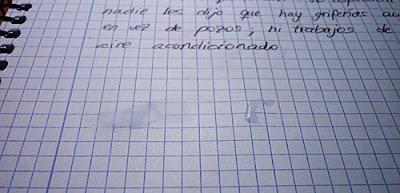 nadie les dijo que hay griferías
en vez de pozos, ni trabajos de
aire acondicionado